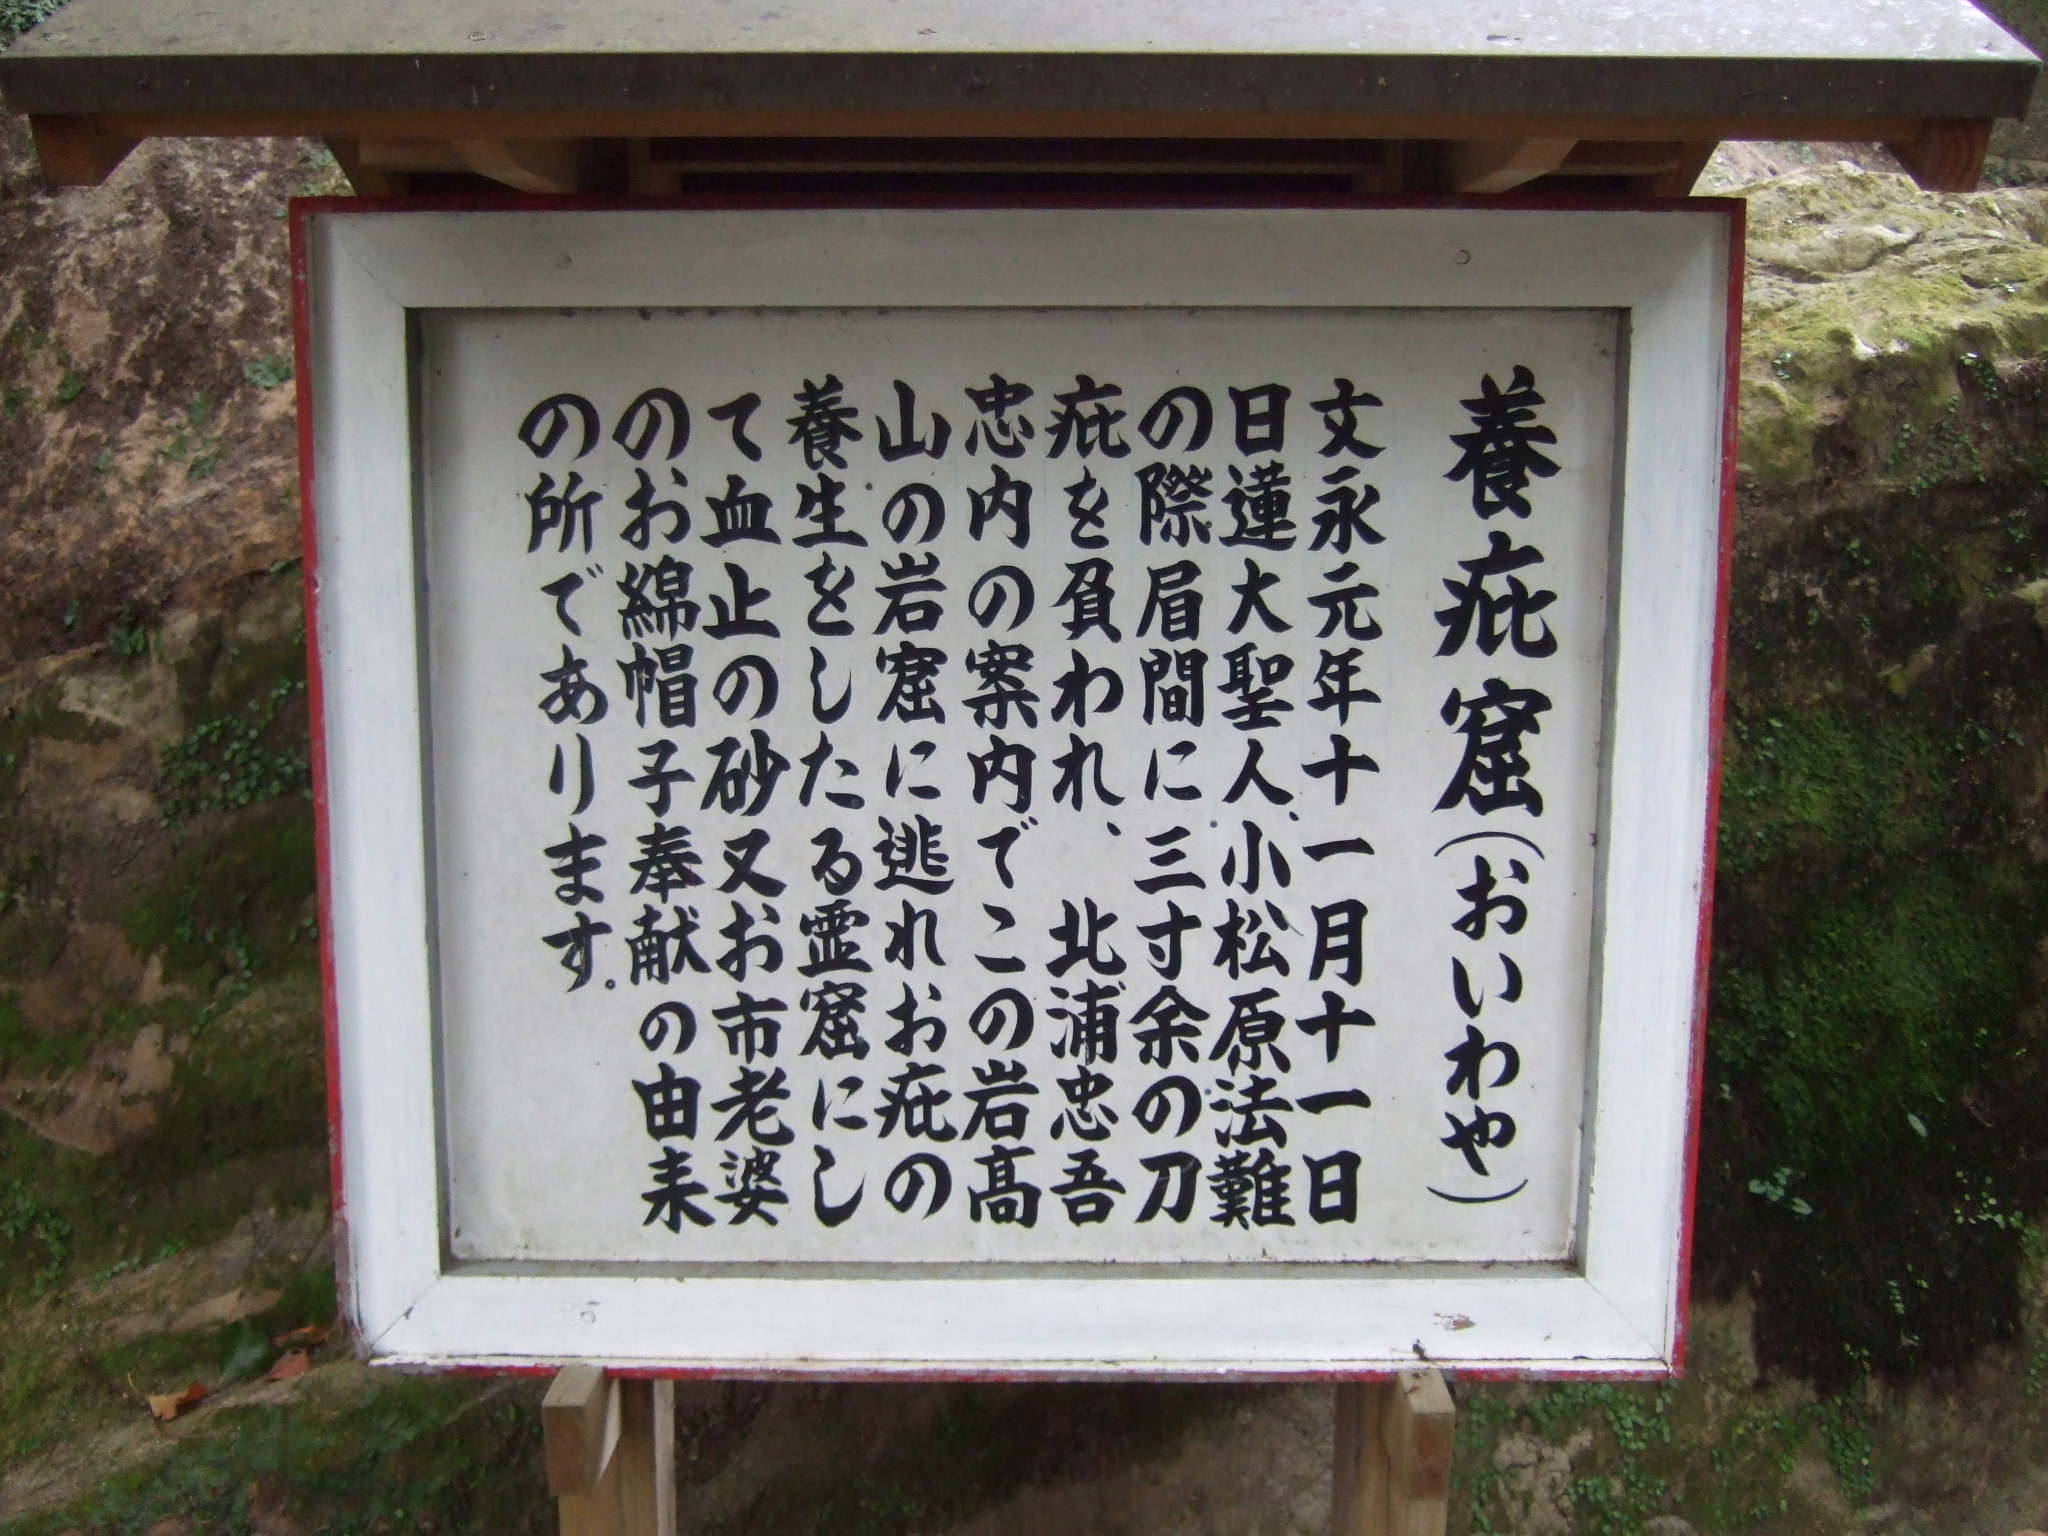 養疵窟(おいわや)
文永元年十一月十一日
日蓮大聖人、小松原法難
の際眉間に三寸余の刀
疵を負われ、北浦忠吾
忠内の案内でこの岩高
山の岩窟に逃れお疵の
養生をしたる霊窟にし
て血止の砂又お市老婆
のお綿帽子奉献の由来
の所であります。